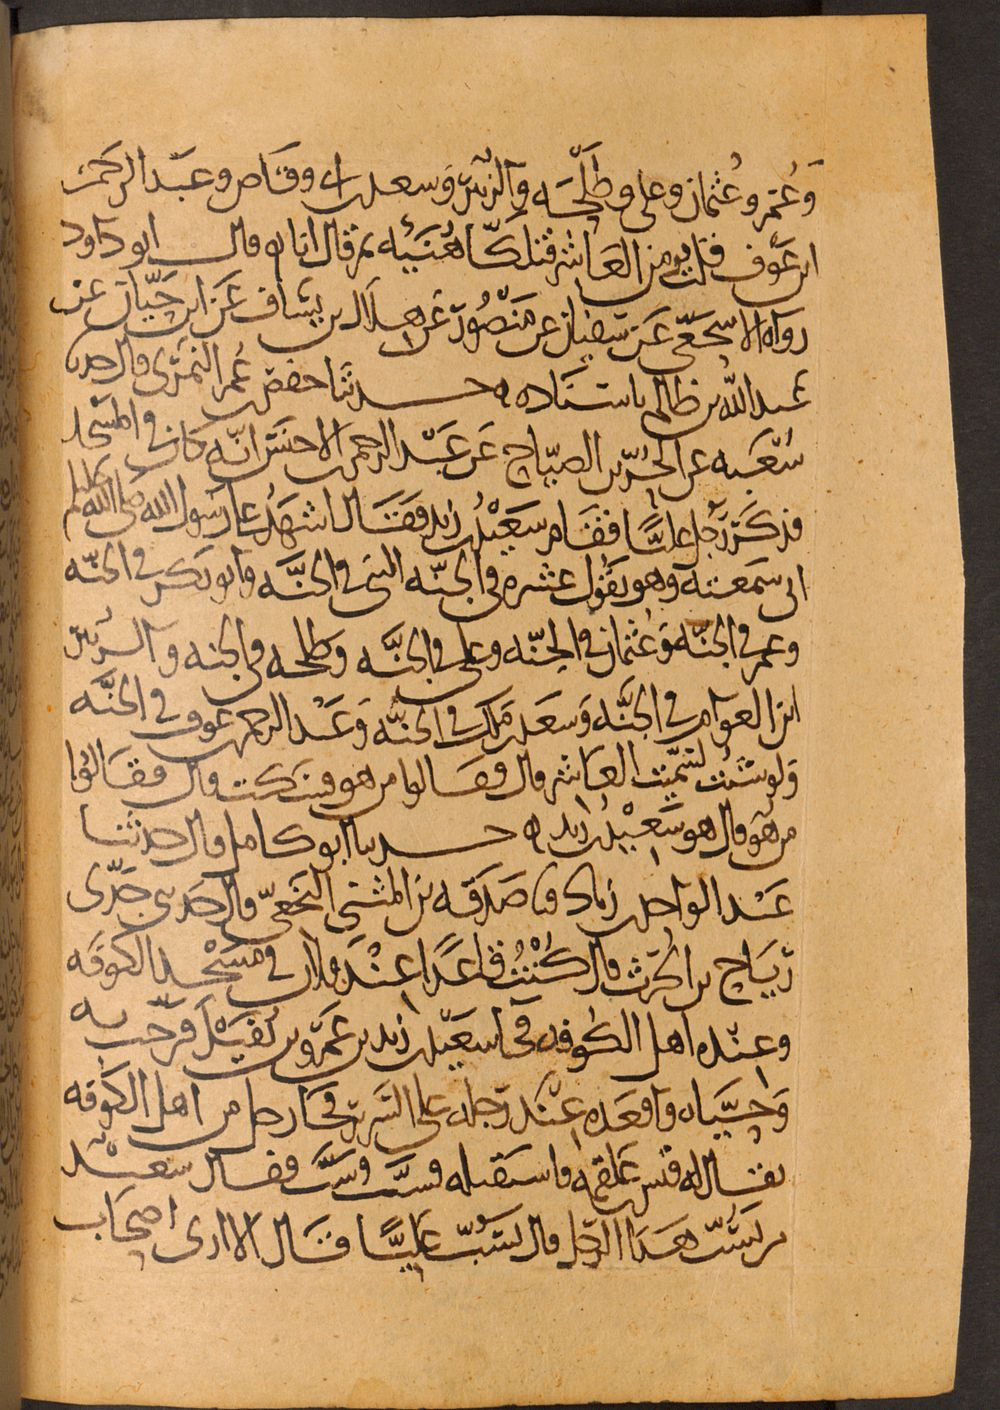 وعمر وعثمان وعلي وطلحه والزبير وسعد بن ابي وقاص وعبد الرحمن
ابن عوف قلت ومن العاشر فتلكا هنيه ثم قال انا ه قال ابو داود
رواه الاشجعي عن سفيان عن منصور عن هلال بن يساف عن ابن حيان عن
عبد الله بن ظالم باسناده ه حدثنا حفص بن عمر النمري قال حدثنا
شعبه عن الحر بن الصياح عن عبد الرحمن بن الاخنس انه كان في المسجد
فذكر رجل عليا فقام سعيد بن زيد فقال اشهد على رسول الله صلى الله عليه وسلم
اني سمعته وهو يقول عشره في الجنه النبي في الجنه وابو بكر في الجنه
وعمر في الجنه وعثمان في الجنه وعلي في الجنه وطلحه في الجنه والزبير
ابن العوام في الجنه وسعد بن ملك في الجنه وعبد الرحمن بن عوف في الجنه
ولو شئت لسميت العاشر قال فقالوا من هو فسكت قال فقالوا
من هو قال هو سعيد بن زيد ه حدثنا ابو كامل قال حدثنا
عبد الواحد بن زياد قثنا صدقه بن المثنى النخعي قال حدثني جدي
رياح بن الحرث قال كنت قاعدا عند فلان في مسجد الكوفه
وعنده اهل الكوفه فجا سعيد بن زيد بن عمرو بن نفيل فرحب به
وحياه واقعده عند رجله على السرير فجا رجل من اهل الكوفه
يقال له قيس بن علقمه فاستقبله فسب وسب فقال سعيد
من يسب هذا الرجل قال يسب عليا فقال الا ارى اصحاب